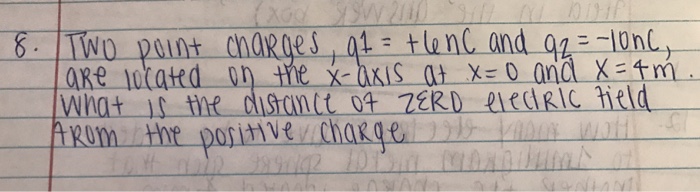 8. Two point charges, q1 = +6nC and q2 = -10nC,
are located on the x-axis at x=0 and x=4m.
What is the distance of ZERO electric field
from the positive charge